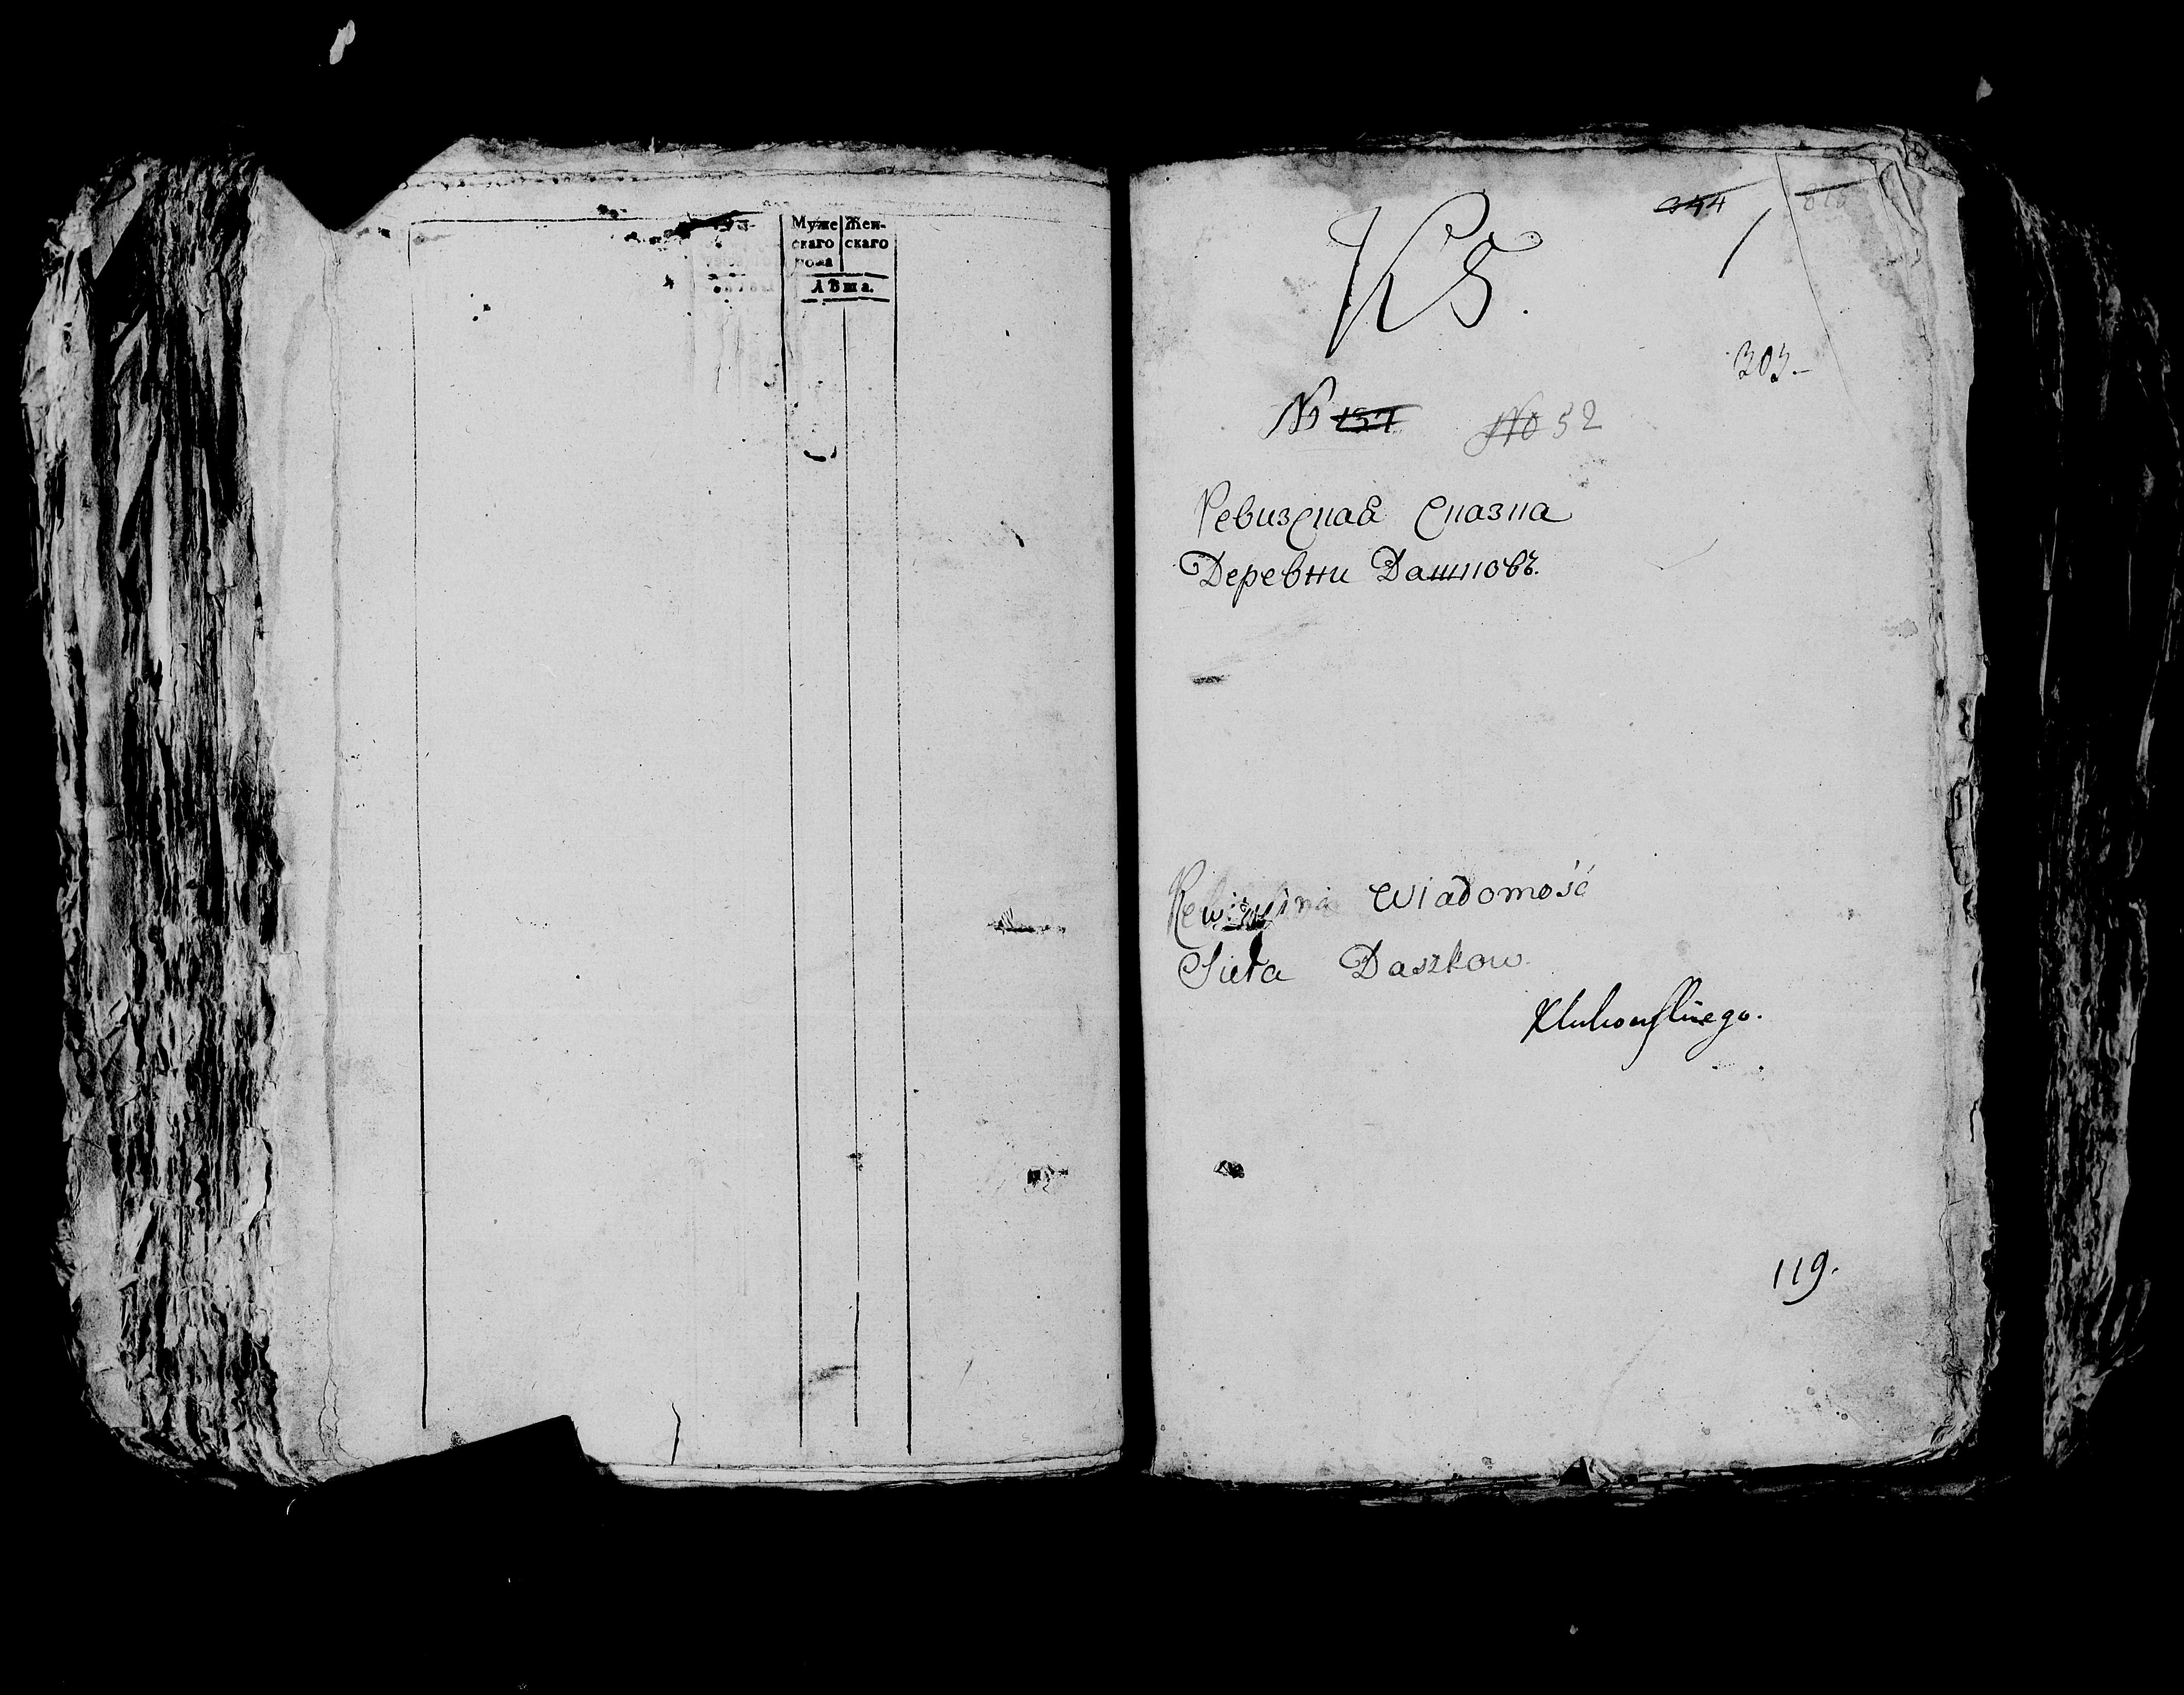 Муже Жен-
скаго скаго
пола
Лѣта.
344
К 8.
303.-
№ 137 № 52
Ревизская Сказка
Деревни Дашковъ.
Rewizyina Wiadomość
Sieła Daszkow.
Klukowskiego.
119.